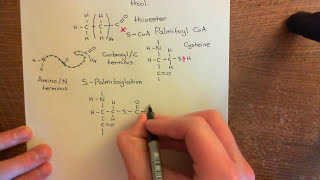 thiol.
thioester
S-CoA Palmitoyl CoA
Cysteine
Carbonyl/C
terminus
Amino/N
terminus
S-Palmitoylation